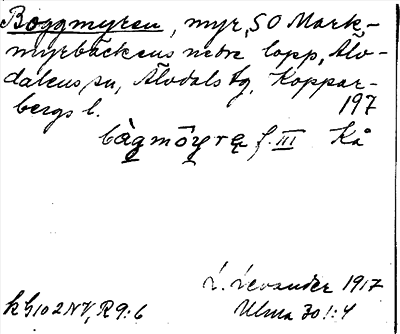 Boggmyren, myr, SO Mark-
myrbäckens nedre lopp, Älv-
dalens sn, Älvdals tg, Koppar-
bergs l. 197
bàgmö̀yrę f. III Kå
L. Levander 1917
k G102NV, R9:6 Ulma 70 1:4